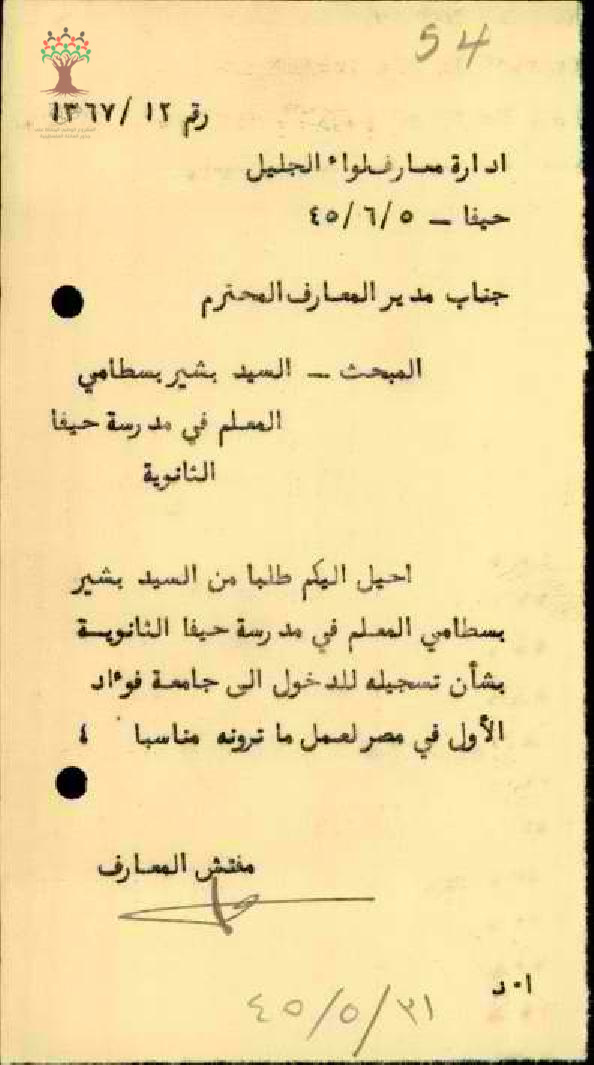 54
رقم ١٢ /١٣٦٧
ادارة معارف لواء الجليل
حيفا — ٤٥/٦/٥
جناب مدير المعارف المحترم
المبحث — السيد بشير بسطامي
المعلم في مدرسة حيفا
الثانوية
احيل اليكم طلبا من السيد بشير
بسطامي المعلم في مدرسة حيفا الثانويـة
بشأن تسجيله للدخول الى جامعة فوءاد
الأول في مصر لعمل ما ترونه مناسبا ٤
مفتش المعارف
ا٠د
٤٥/٥/٣١